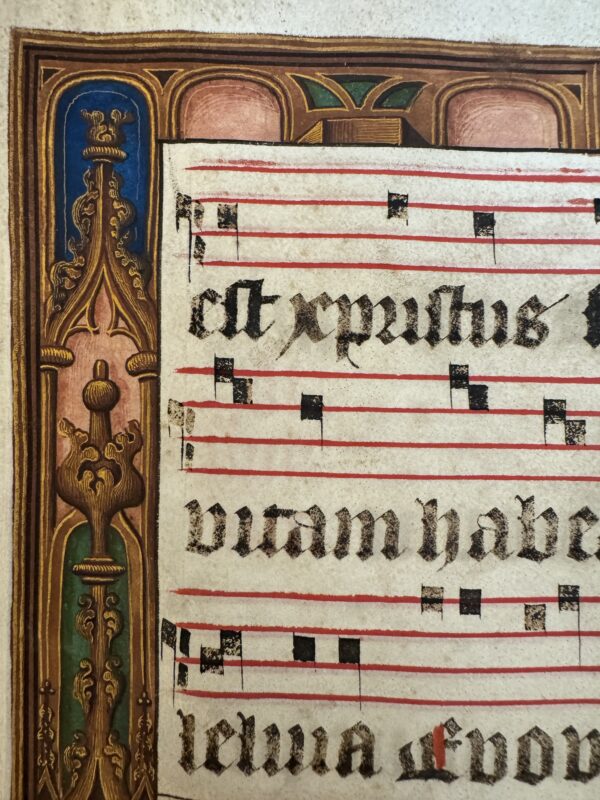 est xpristus
vitam habe
leluia Evov